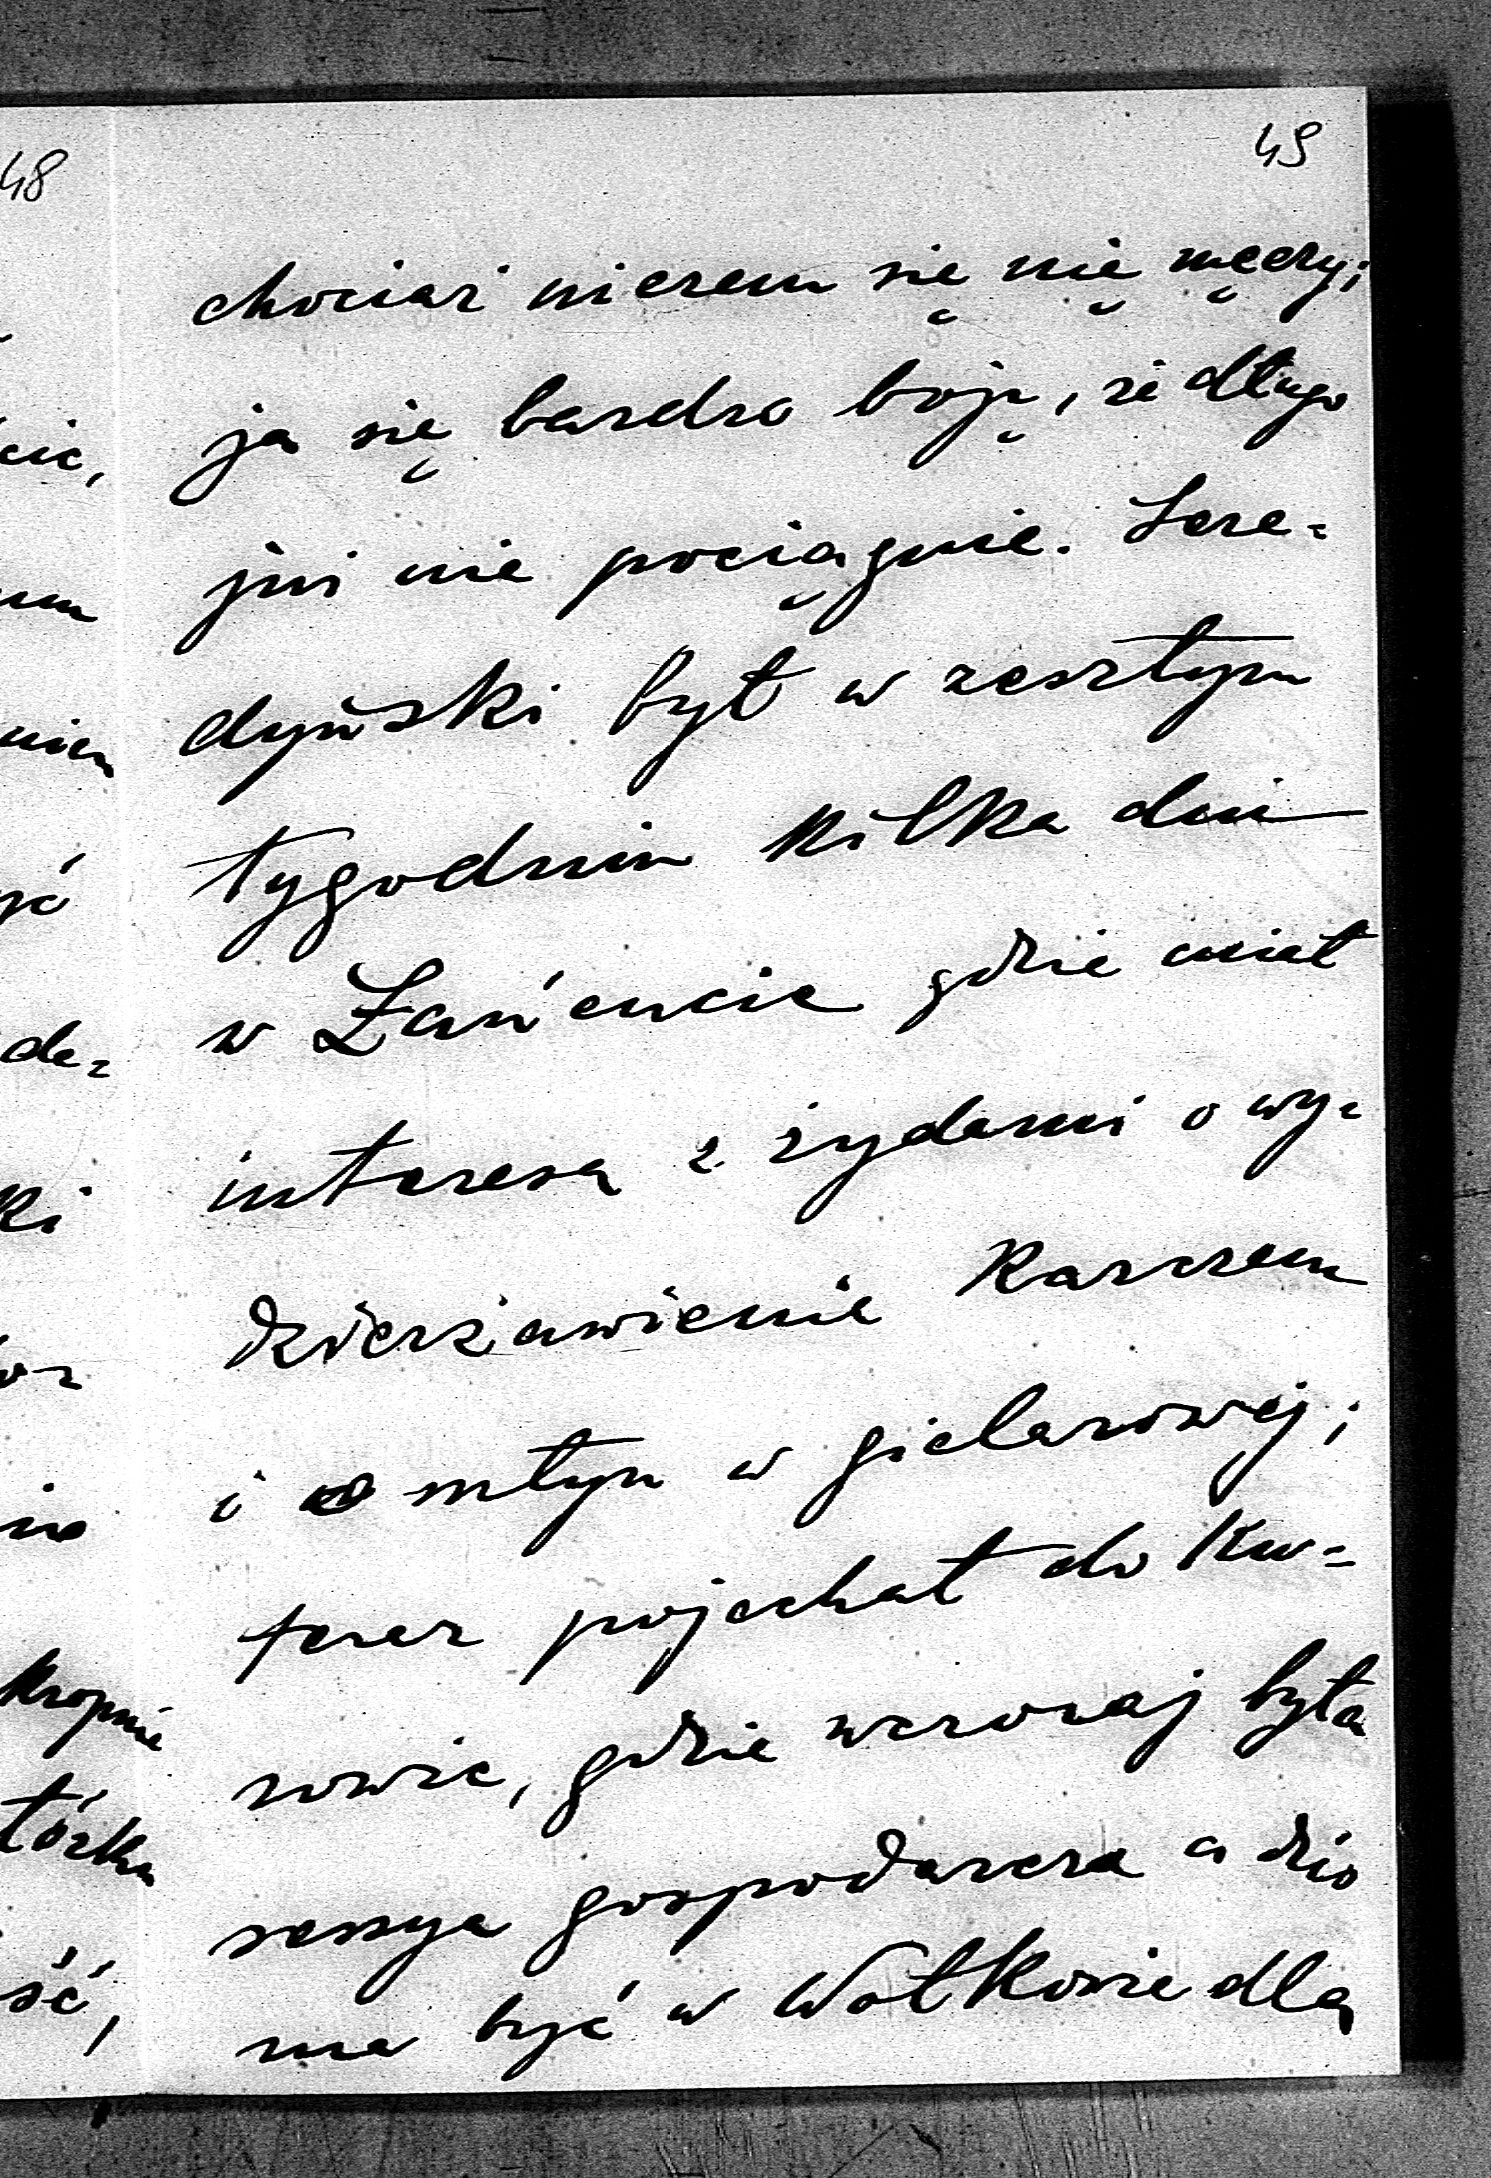 48
49
chociaż niczem się nie męczy;
ja się bardzo boję, że długo
już nie pociągnie. Sere-
dyński był w zeszłym
tygodniu kilka dni
w Łańcucie gdzie miał
interesa z żydami o wy-
dzierżawienie karczem
i o młyn w Gielarowej;
teraz pojechał do Ku-
rowic, gdzie wczoraj była
sessya gospodarcza a dziś
ma być w Wołkowie dla